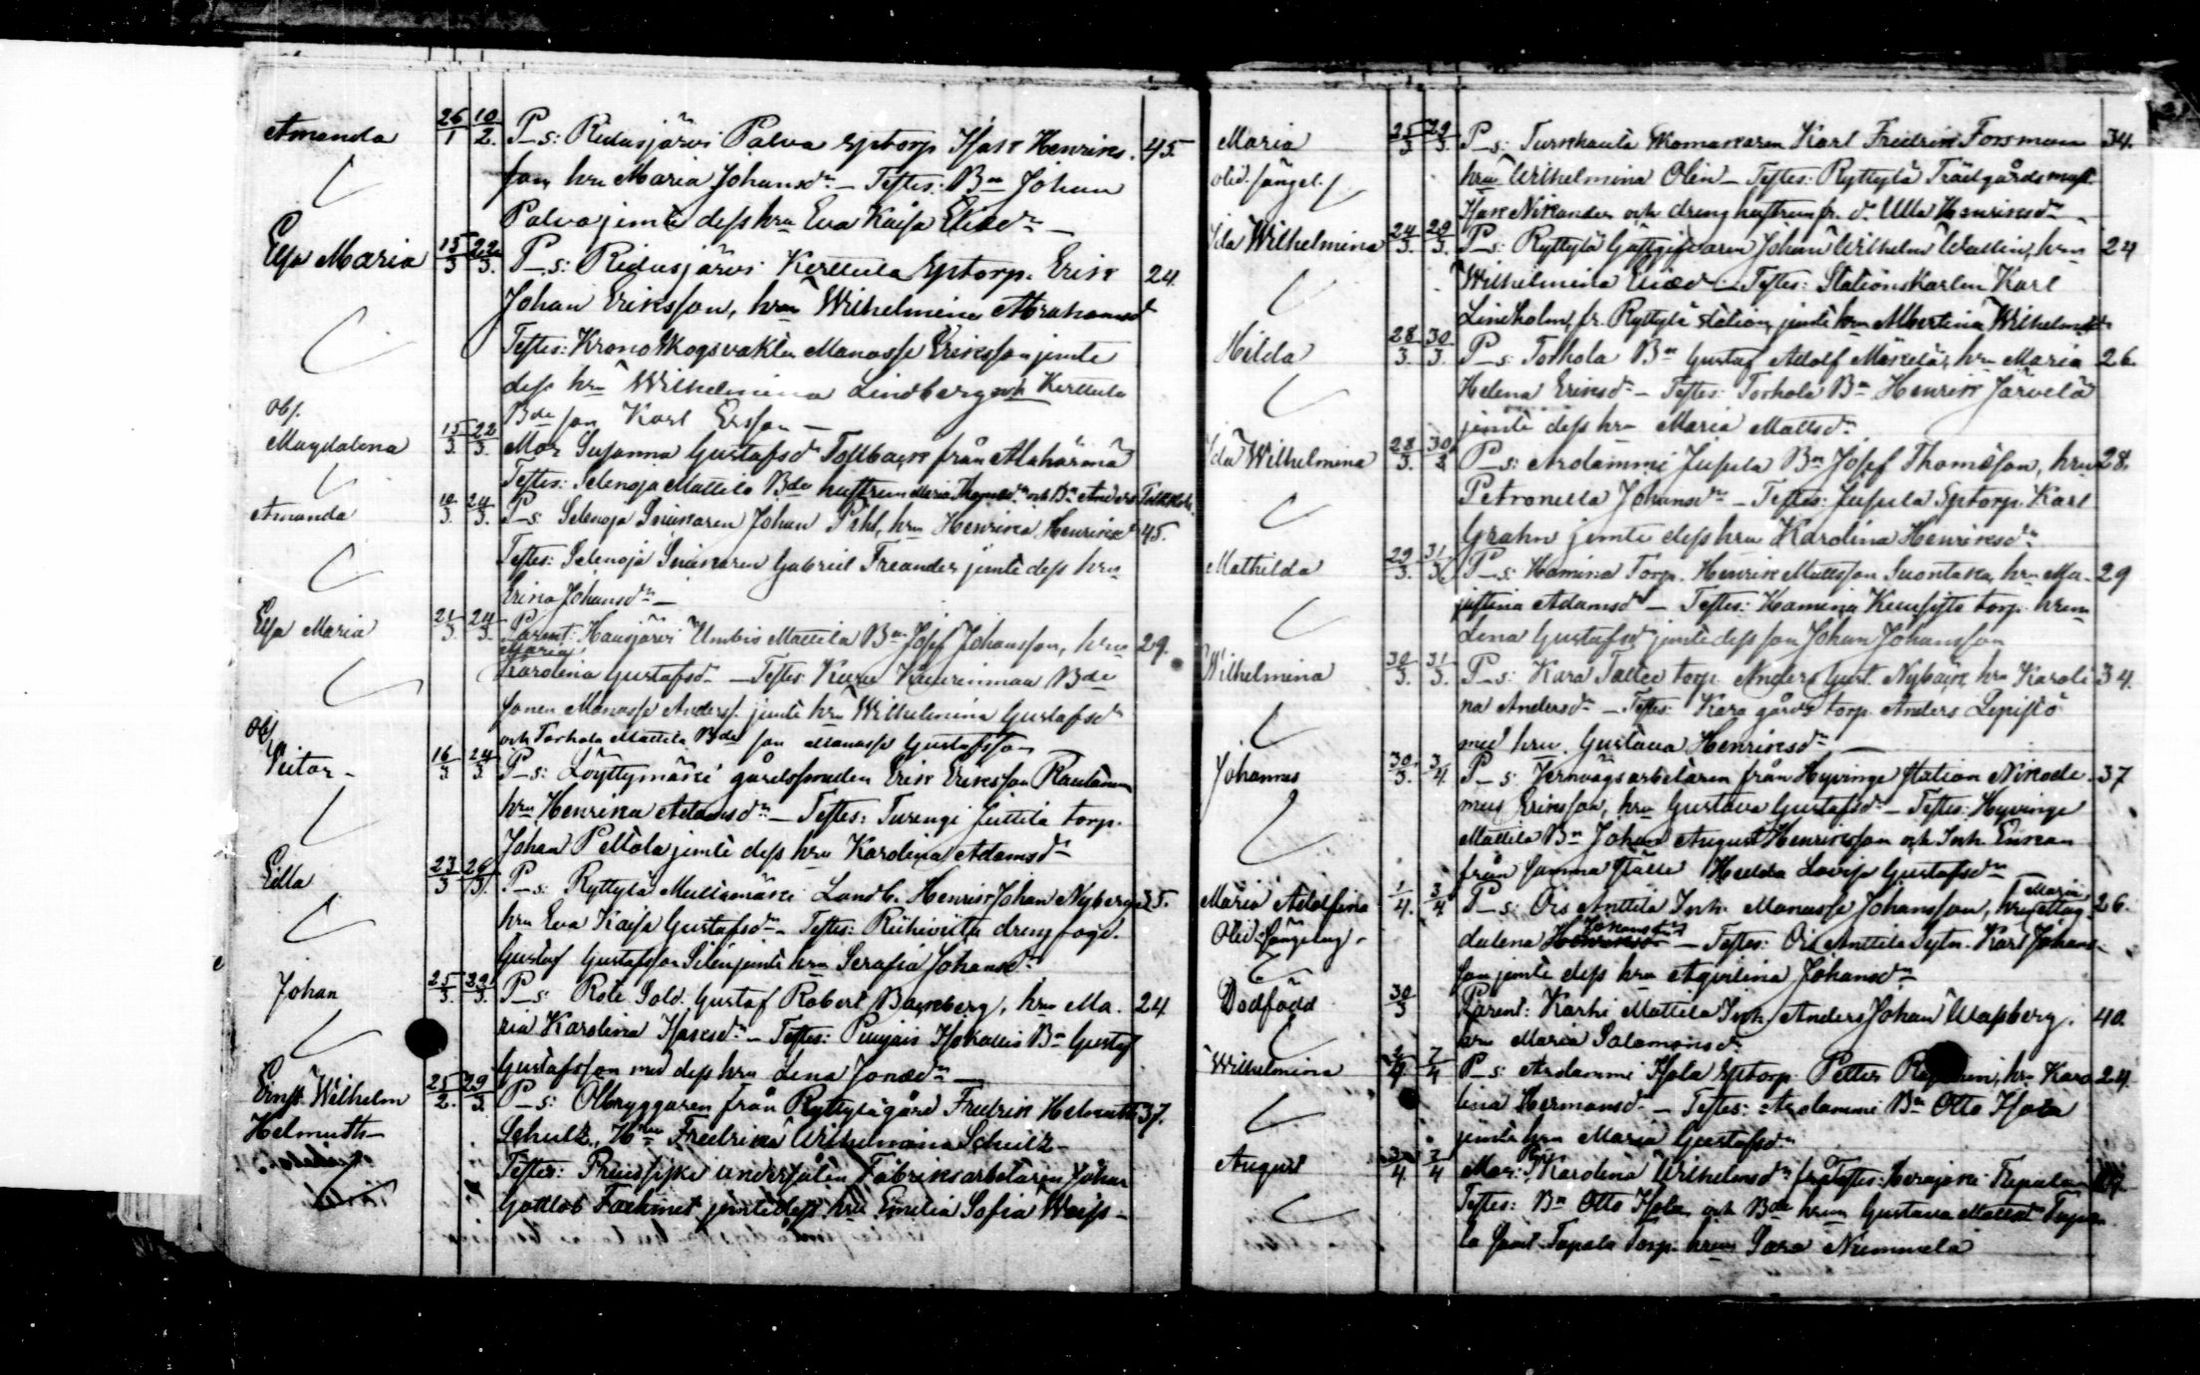 Amanda 26/1 10/2. P_s: Ridasjärvi Palva Sptorp Isak Henriks- 45.
son, hru Maria Johansdr. – Testes: Bn Johan
Palva jemte dess hru Eva Kaisa Eliedr –
Elsa Maria 15/3 22/3. P_s: Ridasjärvi Kerttula Sptorp. Erik 24.
Johan Eriksson, hrun Wilhelmina Abrahamsd
Testes: Krono Skogsvakten Manasse Eriksson jemte
dess hru Wilhelmina Lindberg och Kerttula
Bde son Karl Ersson –
obs.
Magdalena 15/3 22/3. Mor Susanna Gustafsdr Tollback från Alahärmä
Testes: Selenoja Mattila Bde hustrun Maria Thomasdr och Bn Anders
Amanda 10/3. 24/3. P_s: Selenoja Snickaren Johan Pihl, hru Henrika Henriksd 45.
Testes: Selenoja Snickaren Gabriel Treander jemte dess hru
Erika Johansdr –
Elsa Maria 21/3 24/3. Parent: Hausjärvi Umbis Mattila Bn Josef Johansson, hru 29.
Maria
Karolina Gustafsdr – Testes: Kuru Kuurinmaa Bde
sonen Manasse Anders. jemte hru Wilhelmina Gustafsdr
och Torhola Mattila Bde son Manasse Gustafsson
Obs
Viktor – 16/3 24/3 P_s: Löyttymäki gårdssmeden Erik Eriksson
hru Henrika Adamsdr – Testes: Turengi Juttila torp.
Johan Peltola jemte dess hru Karolina Adamsdr
Edla 23/3 26/3. P_s: Ryttylä Multamäki Landb. Henrik Johan Nyberg 35.
hru Eva Kaisa Gustafsdr – Testes: drengfogd.
Gustaf Gustafsson Silén jemte hru Serafia Johansdr
Johan 25/3. 29/3. P_s: Rote Sold. Gustaf Robert Backberg, hru Ma- 24
ria Karolina Isaksdr – Testes: Puujais Isokallis Bn Gustaf
Gustafsson med dess hru Lena Jonædr –
Ernst Wilhelm 25/2. 29/3. P_s: Ölbryggaren från Ryttylä gård Fredrik Helmuth 37.
Helmuth – Schultz, Hru Fredrika Wilhelmina Schultz –
Testes: Preussiske undersåten Fabriksarbetaren Johan
Gottlob jemte dess hru Emilia Sofia Weiss –
Maria 25/3 29/3. P_s: Turkhauta Skomakaren Karl Fredrik Forsman 34.
olid. sängel. hru Wilhelmina Olin – Testes: Ryttylä Trädgårdsmäst.
Isak Nikander och dreng hustrun fr. do Ulla Henriksdr –
Ida Wilhelmina 24/3. 29/3. P_s: Ryttylä Gästgifvaren Johan Wilhelm Wallin, hru 24
Wilhelmina Eliæd – Testes: Stationskarlen Karl
Lindholm, fr. Ryttylä station jemte hru Albertina Wilhelmsdr
Hilda 28/3. 30/3. P_s: Torhola Bn Gustaf Adolf Mäkelä, hru Maria 26.
Helena Eriksdr – Testes: Torhola Bn Henrik Järvelä
jemte dess hru Maria Mattsdr
Ida Wilhelmina 28/3. 30/3 P_s: Arolammi Jussila Bn Josef Thomasson, hru 28.
Petronella Johansdr – Testes: Jussila Sptorp. Karl
Grahn jemte dess hru Karolina Henriksdr
Mathilda 29/3. 31/3. P_s: Hamina Torp. Henrik Mattsson Suontaka, hru Ma- 29
jestina Adamsdr – Testes: Hamina torp. hrun
Lena Gustafsdr jemte dess son Johan Johansson
Wilhelmina 30/3. 31/3. P_s: Kara torp. Anders Gust. Nyback hru Karoli- 34.
na Andersdr – Testes: Kara gårds torp. Anders Lepistö
med hru Gustava Henriksdr –
Johannes 30/3. 3/4. P_s: Jernvägsarbetaren från Hyvinge station Nikode- 37
mus Eriksson, hru Gustava Gustafsdr – Testes: Hyvinge
Mattila Bn Johan August Henriksson och Inh. Enkan
från samma ställe Hedda Lovisa Gustafsdr
Maria Adolfina 1/4. 3/4 P_s: Ois Anttila Inh. Manasse Johansson, hru Maria Mag- 26.
Olid. Sängelag – dalena Johansdr – Testes: Ois Anttila Karl Johans-
son jemte dess hru Agvilina Johansdr
Dödfödd 30/3 Parent: Karhi Mattila Inh. Anders Johan Wassberg. 40.
hru Maria Salomonsdr
Wilhelmina 7/4 P_s: Arolammi Isola Sptorp. Petter hru Karo- 24.
lina Hermansdr – Testes: Arolammi Bn Otto Isola
jemte hru Maria Gustafsdr
August 7/4 Mor: Karolina Wilhelmsdr
Testes: Bn Otto Isola och Bde hrun Gustava Mattsdr
la samt Tapala Torp. hrun Sara Nummela